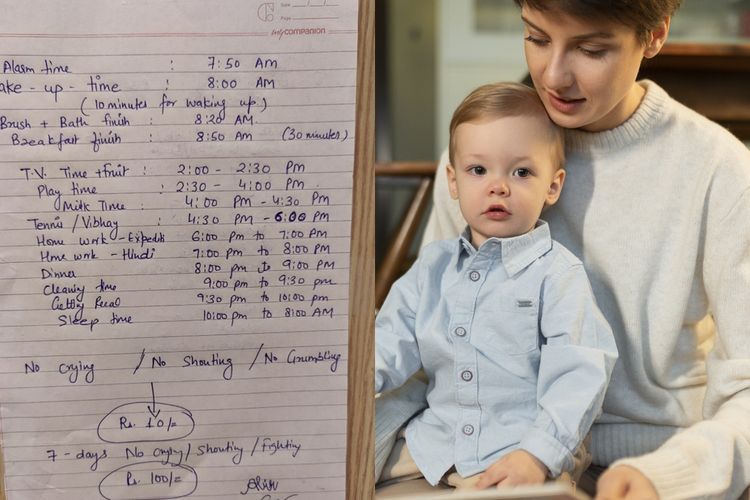 Date
Page
mycompanion
Alarm time : 7:50 AM
ake - up - time : 8:00 AM
(10 minutes for waking up.)
Brush + Bath finish : 8:20 AM.
Breakfast finish : 8:50 AM (30 minutes)
T.V. Time + fruit : 2:00 - 2:30 Pm
Play time : 2:30 - 4:00 Pm
Milk Time : 4:00 Pm - 4:30 Pm
Tennis / Vibhay : 4:30 PM - 6:00 Pm
Home work - : 6:00 Pm to 7:00 Pm
Home work - Hindi 7:00 Pm to 8:00 PM
Dinner 8:00 pm to 9:00 PM
Cleaning time 9:00 pm to 9:30 pm
9:30 pm to 10:00 pm
Sleep time 10:00 pm to 8:00 AM
No Crying / No Shouting / No Grumbling
Rs. 10/=
7 - days No Crying / Shouting / Fighting
Rs. 100/=